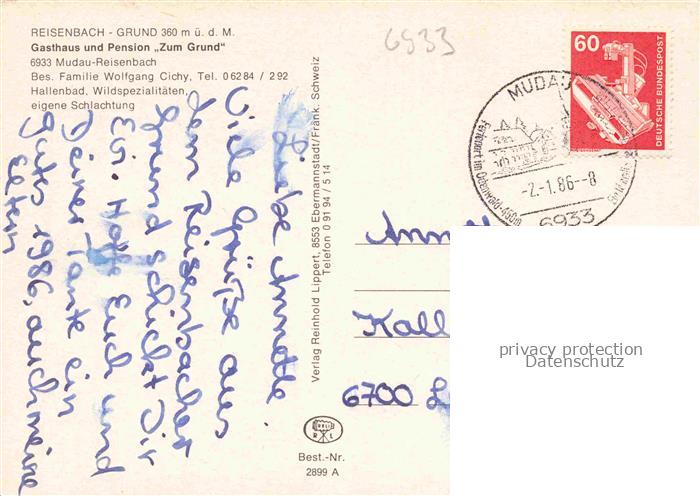 REISENBACH - GRUND 360 m ü. d. M.
Gasthaus und Pension „Zum Grund"
6933 Mudau-Reisenbach
Bes. Familie Wolfgang Cichy, Tel. 0 62 84 / 2 92
Hallenbad, Wildspezialitäten,
eigene Schlachtung
6933
60
DEUTSCHE BUNDESPOST
MUDAU
-2.-1.86--8
6933
Liebe Annette.
Viele Grüße aus
dem Reisenbacher
Grund schickt Dir
Hoffe Euch und
Deiner Tante ein
Gutes 1986, auch meine
Eltern
Verlag Reinhold Lippert, 8553 Ebermannstadt/Fränk. Schweiz
Telefon 0 91 94 / 5 14
Kall
6700
privacy protection
Datenschutz
R L
Best.-Nr.
2899 A